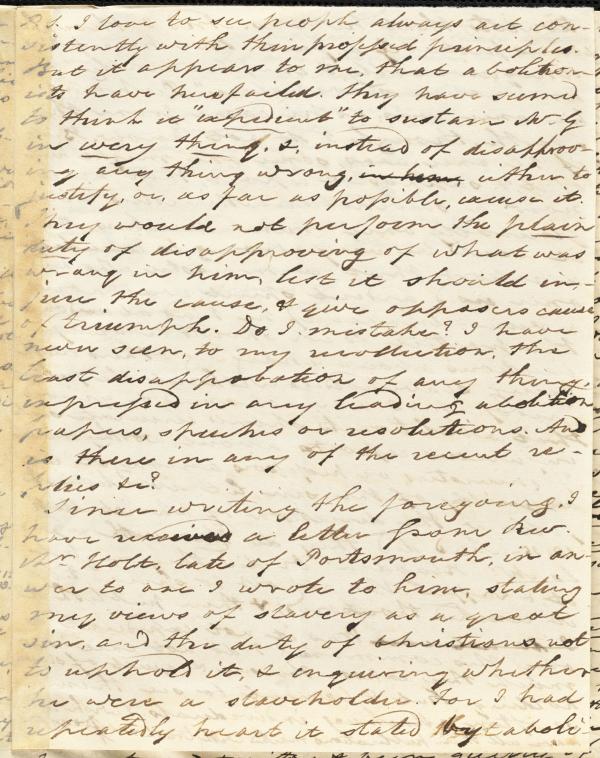 &s. I love to see people always act con-
sistently with their professed principles.
But it appears to me, that abolition-
ists have here failed. They have seemed
to think it "expedient" to sustain Mr G
in every thing, &, instead of disapprov-
ing any thing wrong, in him, either to
justify, or, as far as possible, excuse it.
They would not perform the plain
duty of disapproving of what was
wrong in him, lest it should in-
jure the cause, & give opposers cause
of triumph. Do I mistake? I have
never seen, to my recollection, the
least disapprobation of any thing
expressed in any leading abolition
papers, speeches or resolutions. And
is there in any of the recent re-
plies &c?
Since writing the foregoing, I
have received a letter from Rev.
Mr Holt, late of Portsmouth, in an-
swer to one I wrote to him, stating
my views of slavery as a great
sin, and the duty of christians not
to uphold it, & enquiring whether
he were a slaveholder. For I had
repeatedly heart it stated by aboli-